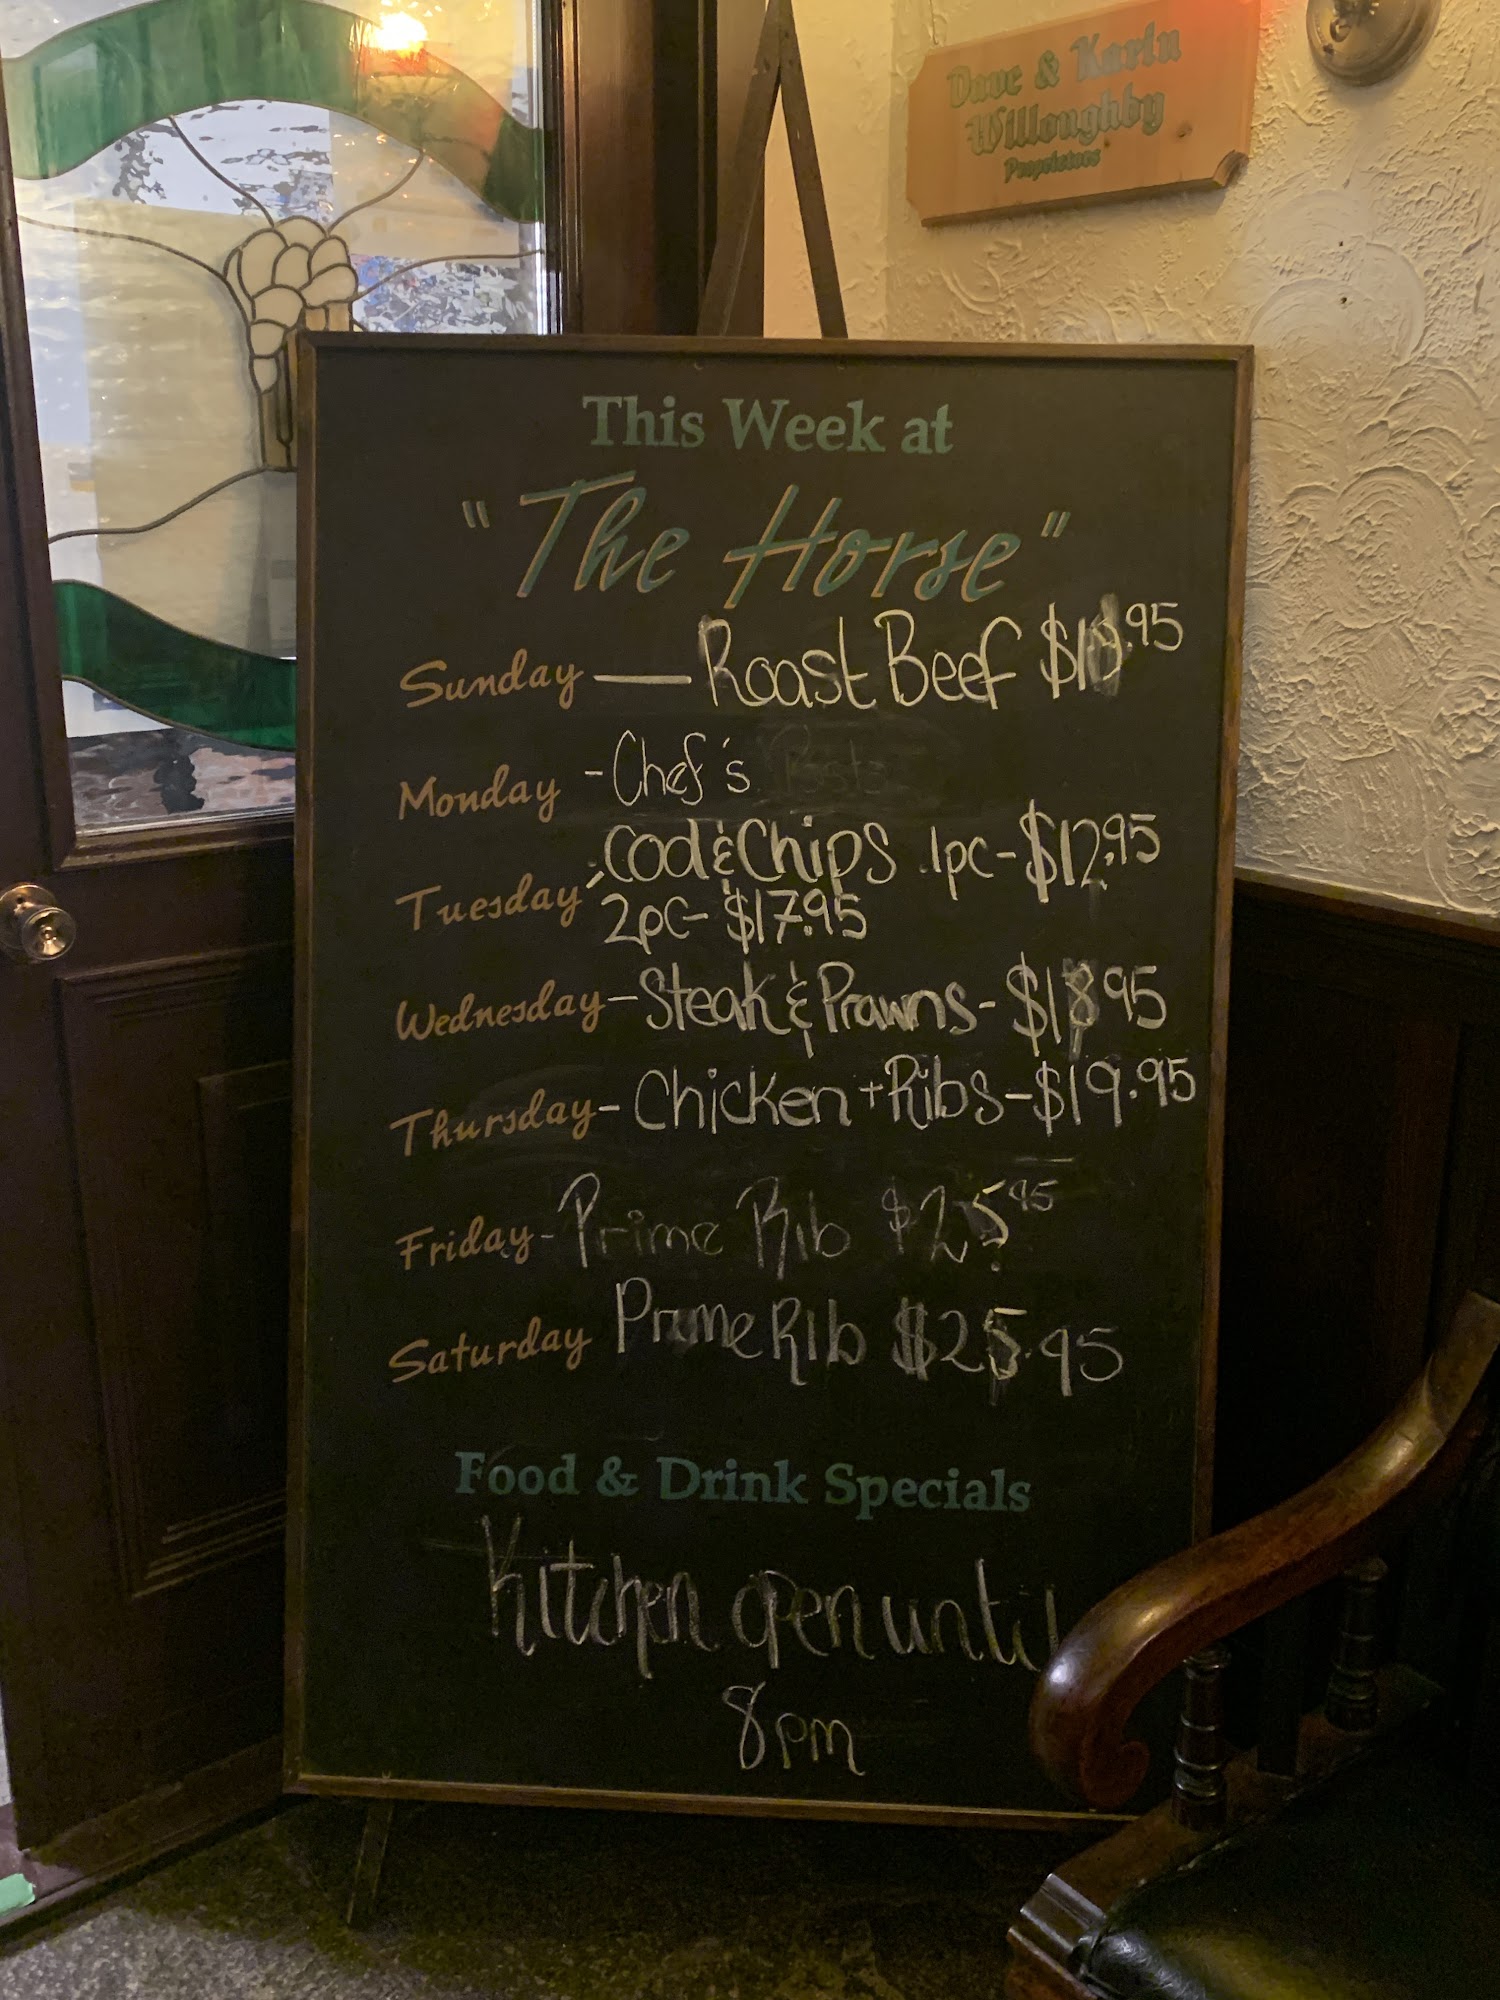 Dave & Karin
Willoughby
Proprietors
This Week at
"The Horse"
Sunday — Roast Beef $18.95
Monday - Chef's
Cod & Chips 1pc - $12.95
Tuesday
2pc - $17.95
Wednesday - Steak & Prawns - $18.95
Thursday - Chicken + Ribs - $19.95
Friday - Prime Rib $25.95
Saturday Prime Rib $25.95
Food & Drink Specials
Kitchen open until
8pm